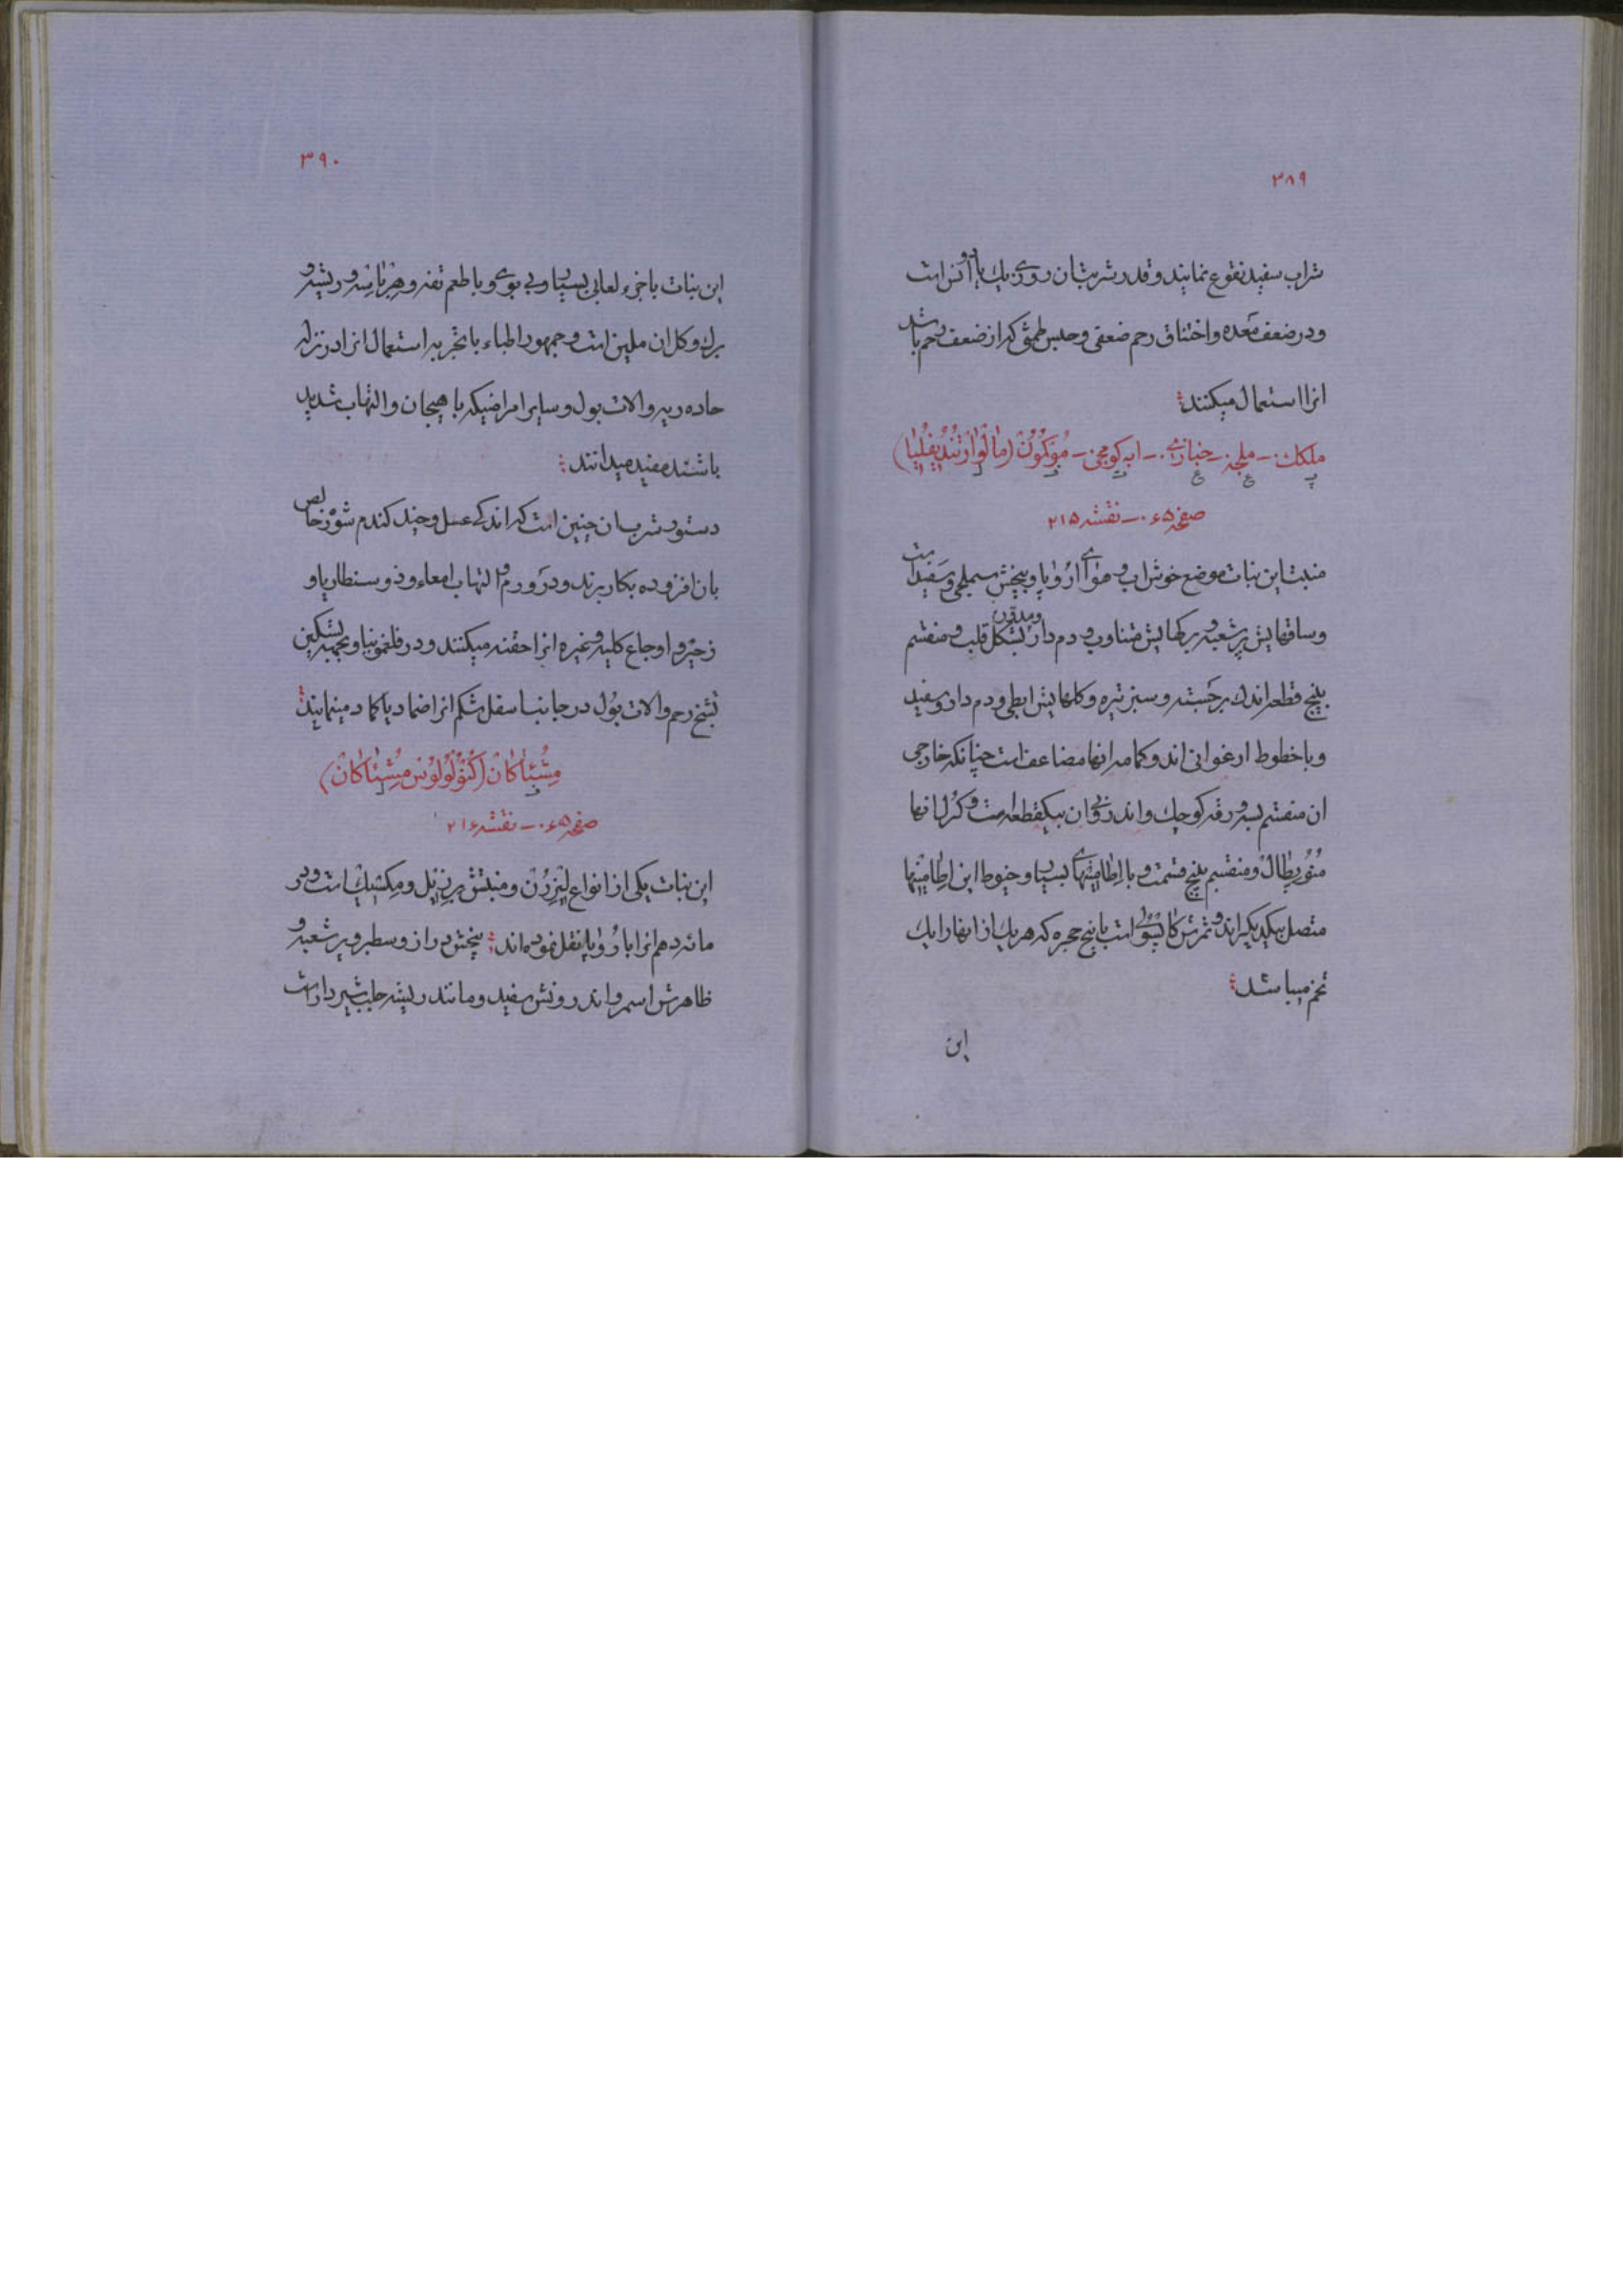 ۳۸۹
شراب سفید نقوع نمایند و قدر شربتان روزی یك یا دو اُنس است
و در ضعف معده و اختناق رحم ضعفی و حبس طمث که از ضعف رحم باشد
انرا استعمال میکنند
ملکك - ملجه - خبازی - ابه کومجی - مُوَکمُون (مالوا رُتُندیفلیا)
پ ع ع ت ر ر
صفحه ۰۶۵ - نقشه ۲۱۵
منبت این نبات موضع خوش اب و هوای اُرُوپا و بیخش سهمی و سفید است
و ساقهایش پر شعبه و برکهایش متناوب و دم دار و مدور بشکل قلب و منقسم
بپنج قطعه اندك برجسته و سبز تیره و کلهایش ابطی و دم دار و سفید
و با خطوط ارغوانی اند و کمامه انها مضاعف است چنانکه خارجی
ان منقسم بسه ورقه کوچك و اندرونی ان بیکقطعه است و کرل انها
مُنُوپطال و منقسم بپنج قسمت و با اِطامینهای بسیار و خیوط این اِطامینها
متصل بیکدیکراند و ثمرش کاپسُولی است با پنج حجره که هر یك از انها را یك
تخم میباشد
این
۳۹۰
این نبات با جزء لعابی بسیار و بی بوی و با طعم تفه و هِربا سه و ریشه و
برك و کل ان ملین است و جمهور اطباء با تجربه استعمال انرا در نزله
حاده ریه و الات بول و سایر امراضیکه با هیجان و التهاب شدید
باشند مفید میدانند
دستور شرب ان چنین است که اندکی عسل و چند کندم شوره خالص
بان افزوده بکار برند و در ورم و التهاب امعاء و ذوسنطاریا و
زحیر و اوجاع کلیه و غیره انرا حقنه میکنند و در فلغمونیا و بجهه تسکین
تشنج رحم و الات بول در جانب اسفل شکم انرا ضماد یا کماد مینمایند
مِشُئاکان (کُنوُلوُلوُس مِشُئاکان)
ف ر
صفحه ۰۶۵ - نقشه ۲۱۶
این نبات یکی از انواع لیزرُن و منبتش برِزیل و مکسیك است و در
مائه دهم انرا باُرُوپا نقل نموده اند بیخش دراز و سطبر و پر شعبه و
ظاهرش اسمر و اندرونش سفید و مانند ریشه جلب شیردار است